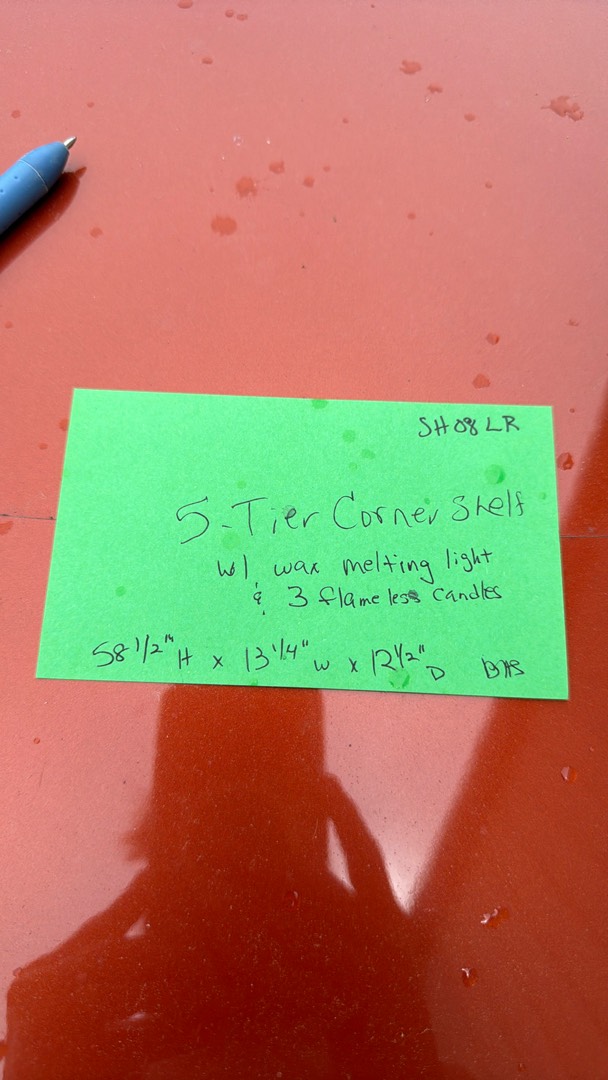 SH08LR
5-Tier Corner Shelf
w/ wax melting light
& 3 flameless candles
58 1/2" H x 13 1/4" W x 12 1/2" D